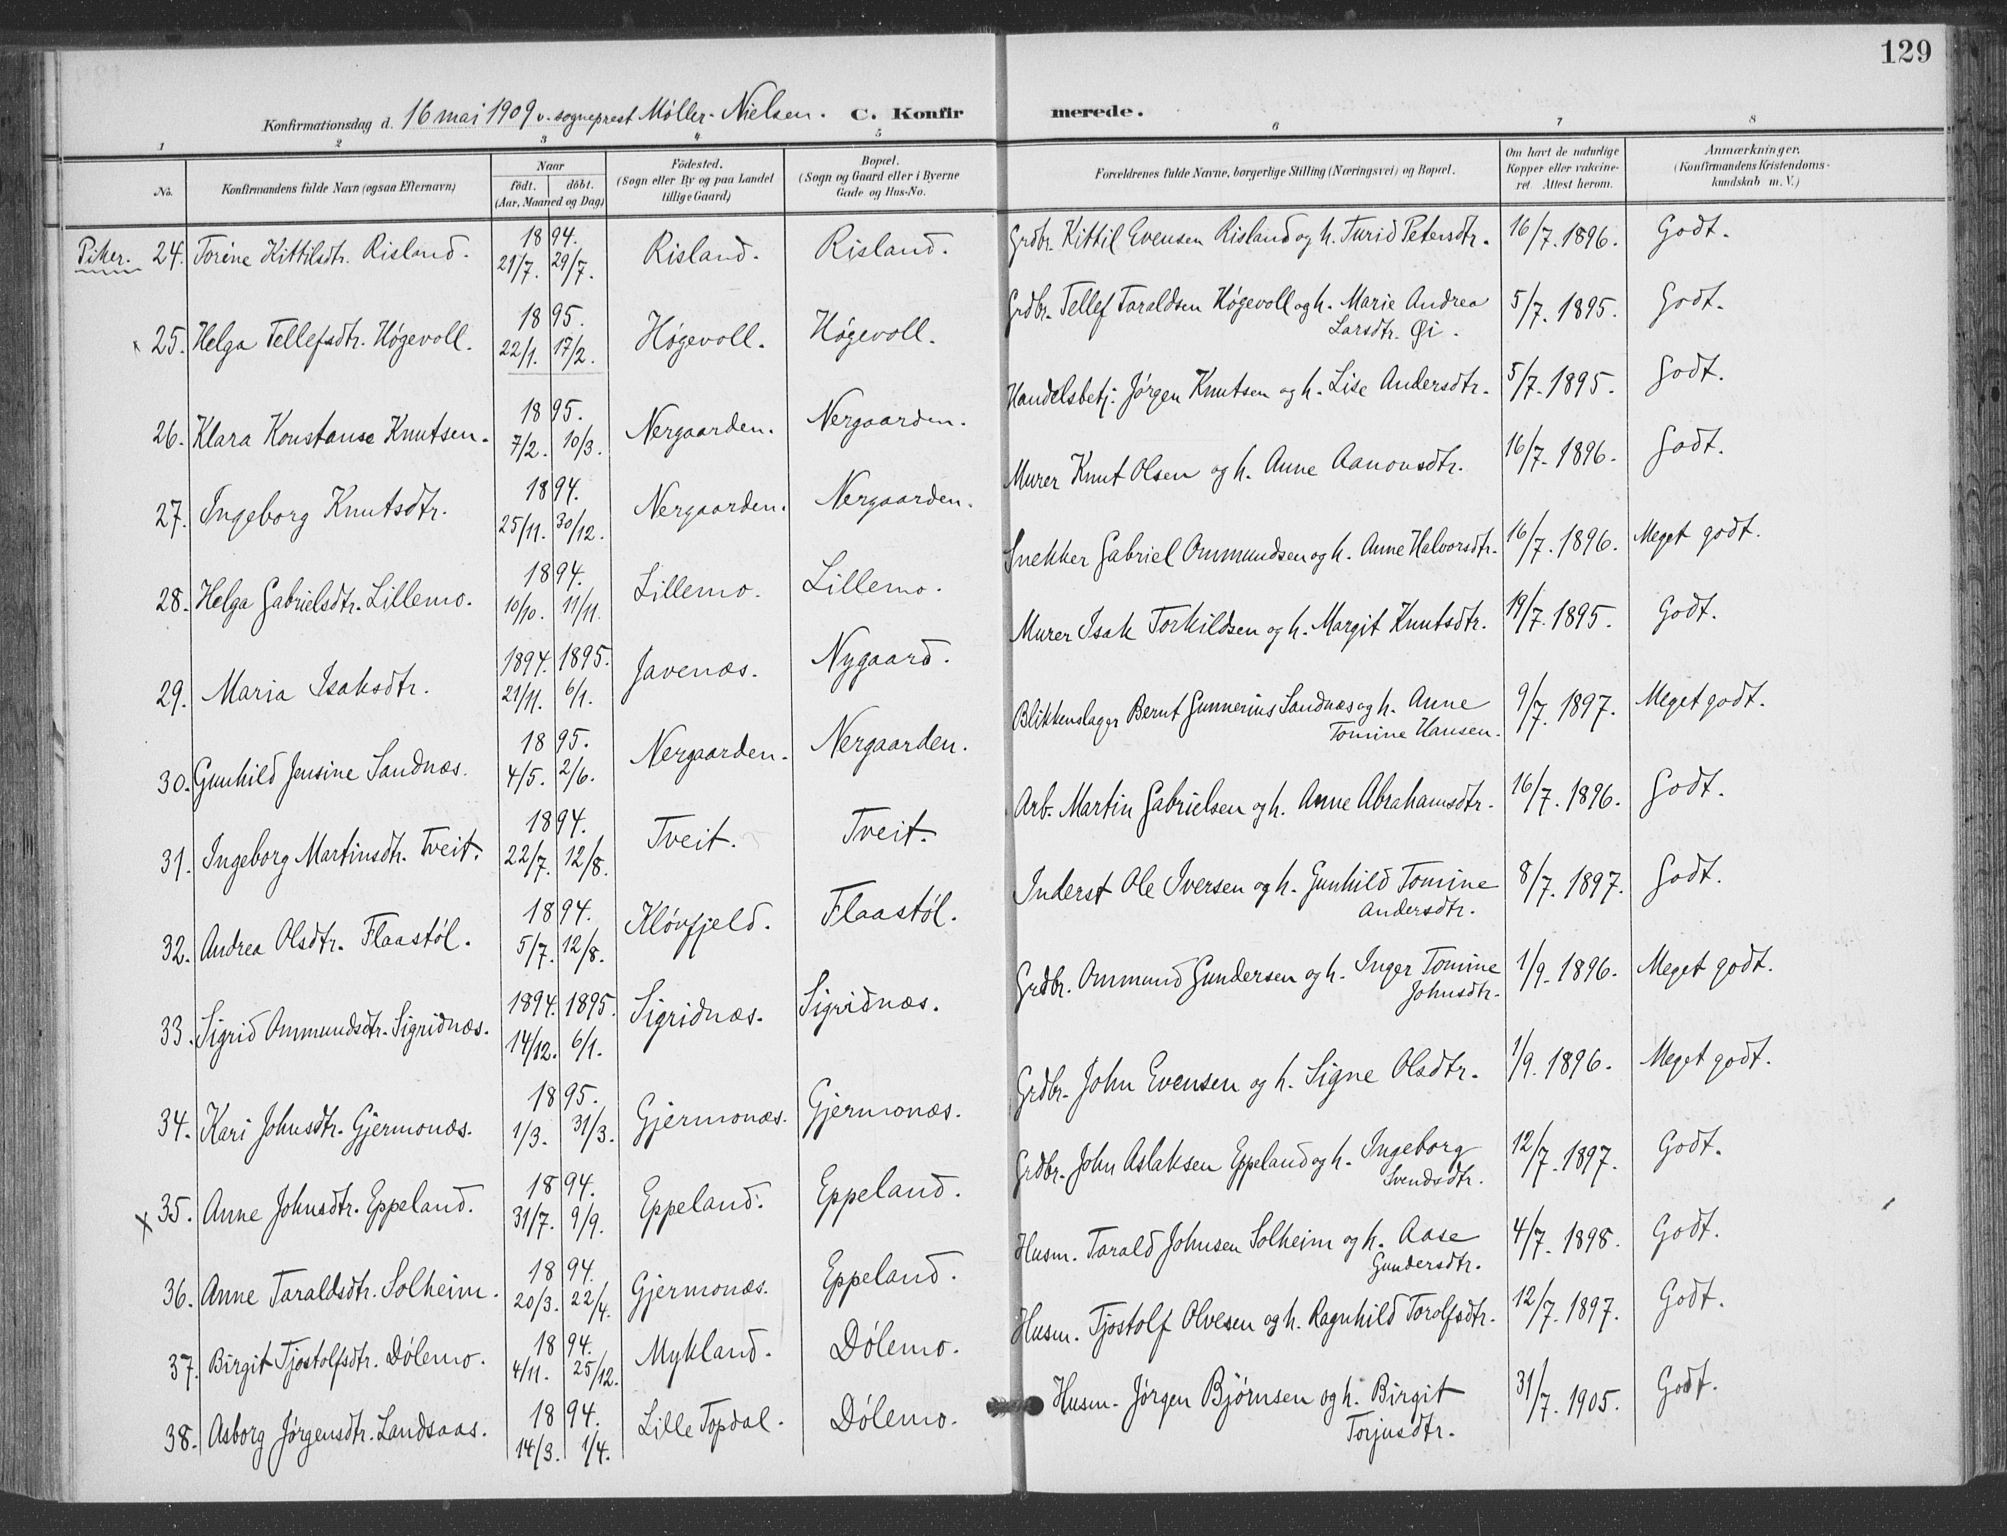 129
Konfirmationsdag d. 16 mai 1909 v. sogneprest Møller-Nielsen. C. Konfirmerede.
1 2 3 4 5 6 7 8
No. Konfirmandens fulde Navn (ogsaa Efternavn) Naar født. døbt. (Aar, Maaned og Dag) Fødested. (Sogn eller By og paa Landet tillige Gaard) Bopæl. (Sogn og Gaard eller i Byerne Gade og Hus-No. Forældrenes fulde Navne, borgerlige Stilling (Næringsvei) og Bopæl. Om havt de naturlige Kopper eller vaccineret. Attest herom. Anmærkninger. (Konfirmandens Kristendomskundskab m. V.)
Piker. 24. Torine Kittilsdtr. Risland. 1894. 21/7. 29/7. Risland. Risland. Grdbr. Kittil Evensen Risland og h. Turid Petersdtr. 16/7. 1896. Godt.
25. Helga Tellefsdtr. Høgevoll. 1895. 22/1. 17/2. Høgevoll. Høgevoll. Grdbr. Tellef Taraldsen Høgevoll og h. Marie Andrea Larsdtr. Øi. 5/7. 1895. Godt.
26. Klara Konstanse Knutsen. 1895. 7/2. 10/3. Nergaarden. Nergaarden. Handelsbetj. Jørgen Knutsen og h. Lise Andersdtr. 5/7. 1895. Godt.
27. Ingeborg Knutsdtr. 1894. 25/11. 30/12. Nergaarden. Nergaarden. Murer Knut Olsen og h. Anne Aanonsdtr. 16/7. 1896. Godt.
28. Helga Gabrielsdtr. Lillemo. 1894. 10/10. 11/11. Lillemo. Lillemo. Snekker Gabriel Ommundsen og h. Anne Halvorsdtr. 16/7. 1896. Meget godt.
29. Maria Isaksdtr. 1894. 1895. 21/11. 6/1. Javenæs. Nygaard. Murer Isak Torkildsen og h. Margit Knutsdtr. 19/7. 1895. Godt.
30. Gunhild Jensine Sandnæs. 1895. 4/5. 2/6. Nergaarden. Nergaarden. Blikkenslager Bernt Gunnerius Sandnæs og h. Anne Tomine Hansen. 9/7. 1897. Meget godt.
31. Ingeborg Martinsdtr. Tveit. 1894. 22/7. 12/8. Tveit. Tveit. Arb. Martin Gabrielsen og h. Anne Abrahamsdtr. 16/7. 1896. Godt.
32. Andrea Olsdtr. Flaastøl. 1894. 5/7. 12/8. Kløvfjeld. Flaastøl. Inderst Ole Iversen og h. Gunhild Tomine Andersdtr. 8/7. 1897. Godt.
33. Sigrid Ommundsdtr. Sigridnæs. 1894. 1895. 14/12. 6/1. Sigridnæs. Sigridnæs. Grdbr. Ommund Gundersen og h. Inger Tomine Johnsdtr. 1/9. 1896. Meget godt.
34. Kari Johnsdtr. Gjermonæs. 1895. 1/3. 31/3. Gjermonæs. Gjermonæs. Grdbr. John Evensen og h. Signe Olsdtr. 1/9. 1896. Meget godt.
x 35. Anne Johnsdtr. Eppeland. 1894. 31/7. 9/9. Eppeland. Eppeland. Grdbr. John Aslaksen Eppeland og h. Ingeborg Svendsdtr. 12/7. 1897. Godt.
36. Anne Taraldsdtr. Solheim. 1894. 20/3. 22/4. Gjermonæs. Eppeland. Husm. Tarald Johnsen Solheim og h. Aase Gundersdtr. 4/7. 1898. Godt.
37. Birgit Tjostolfsdtr. Dølemo. 1894. 4/11. 25/12. Mykland. Dølemo. Husm. Tjostolf Olvesen og h. Ragnhild Torolfsdtr. 12/7. 1897. Godt.
38. Asborg Jørgensdtr. Landsaas. 1894. 14/3. 1/4. Lille Topdal. Dølemo. Husm. Jørgen Bjørnsen og h. Birgit Torjusdtr. 31/7. 1905. Godt.